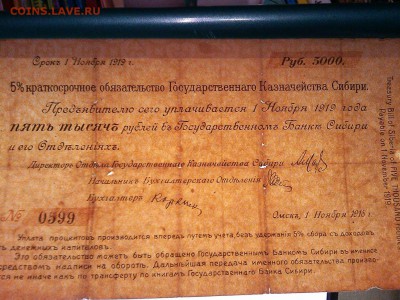 COINS.LAVE.RU
Срокъ 1 Ноября 1919 г.
Руб. 5000.
5% краткосрочное обязательство Государственнаго Казначейства Сибири.
Предъявителю сего уплачивается 1 Ноября 1919 года
пять тысячъ рублей въ Государственномъ Банкѣ Сибири
и его Отдѣленіяхъ.
Директоръ Отдѣла Государственнаго Казначейства Сибири
Начальникъ Бухгалтерскаго Отдѣленія
Бухгалтеръ
№ 0599
Омскъ, 1 Ноября 1918 г.
Уплата процентовъ производится впередъ путемъ учета, безъ удержанія 5% сбора съ доходовъ
денежныхъ капиталовъ.
Это обязательство можетъ быть обращено Государственнымъ Банкомъ Сибири въ именное
средствомъ надписи на оборотѣ. Дальнѣйшая передача именного обязательства произво-
не иначе какъ по трансферту по книгамъ Государственнаго Банка Сибири.
Treasury Bond Siberia of FIVE THOUSAND
Payable in 1 November 1919